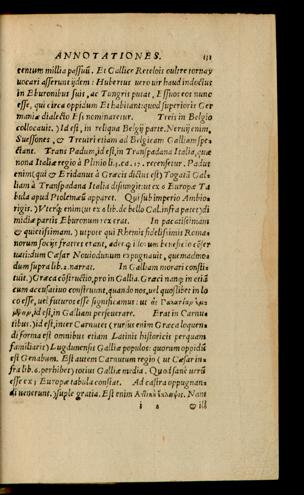 ANNOTATIONES. 131
centum millia passuũ. Et Gallice Retelois oultre tornay
vocari asserunt ijdem: Hubertus uero uir haud indoctus
in Eburonibus suis, ac Tungris putat, Essuos eos nunc
esse, qui circa oppidum Et habitant: quod superioris Ger
maniæ dialecto Esi nominaretur. Treis in Belgio
collocauit. ) Id est, in reliqua Belgij parte. Neruij enim,
Suessones, & Treuiri etiam ad Belgicam Galliam spe-
ctant. Trans Padum, id est, in Transpadana Italia, quæ
nona Italiæ regio à Plinio li.3. ca. 17. recensetur. Padus
enim (qui & Eridanus à Græcis dictus est) Togatã Gal-
liam à Transpadana Italia disiungit: ut ex 6 Europæ Ta
bula apud Ptolemæũ apparet. Qui sub imperio Ambio-
rigis. ) Vterq; enim (ut ex 6 lib. de bello Gal. infra patet) di
midiæ partis Eburonum rex erat. In pacatissimam
& quietissimam. ) utpote qui Rhemis fidelissimis Roma-
norum socijs fratres erant, adeoq; illorum beneficio cõser
uati: dum Cæsar Nouiodunum expugnauit, quemadmo-
dum supra lib. 2. narrat. In Galliam morari consti-
tuit. ) Græca cõstructio, pro in Gallia. Græci nanq; in etiã
cum accusatiuo construunt, quando nos, uel quoslibet in lo
co esse, uel futuros esse significamus: ut
id est, in Galliam perseuerare. Erat in Carnu-
tibus. ) id est, inter Carnutes (rursus enim Græca loquen-
di forma est omnibus etiam Latinis historicis perquam
familiaris) Lugdunensis Galliæ populos: quorum oppidũ
est Genabum. Est autem Carnutum regio (ut Cæsar in-
fra lib. 6. perhibet) totius Galliæ media. Quod sanè uerũ
esse ex 3 Europæ tabula constat. Ad castra oppugnan-
di uenerunt. ) suple gratia. Est enim Nam
i 2 & ill